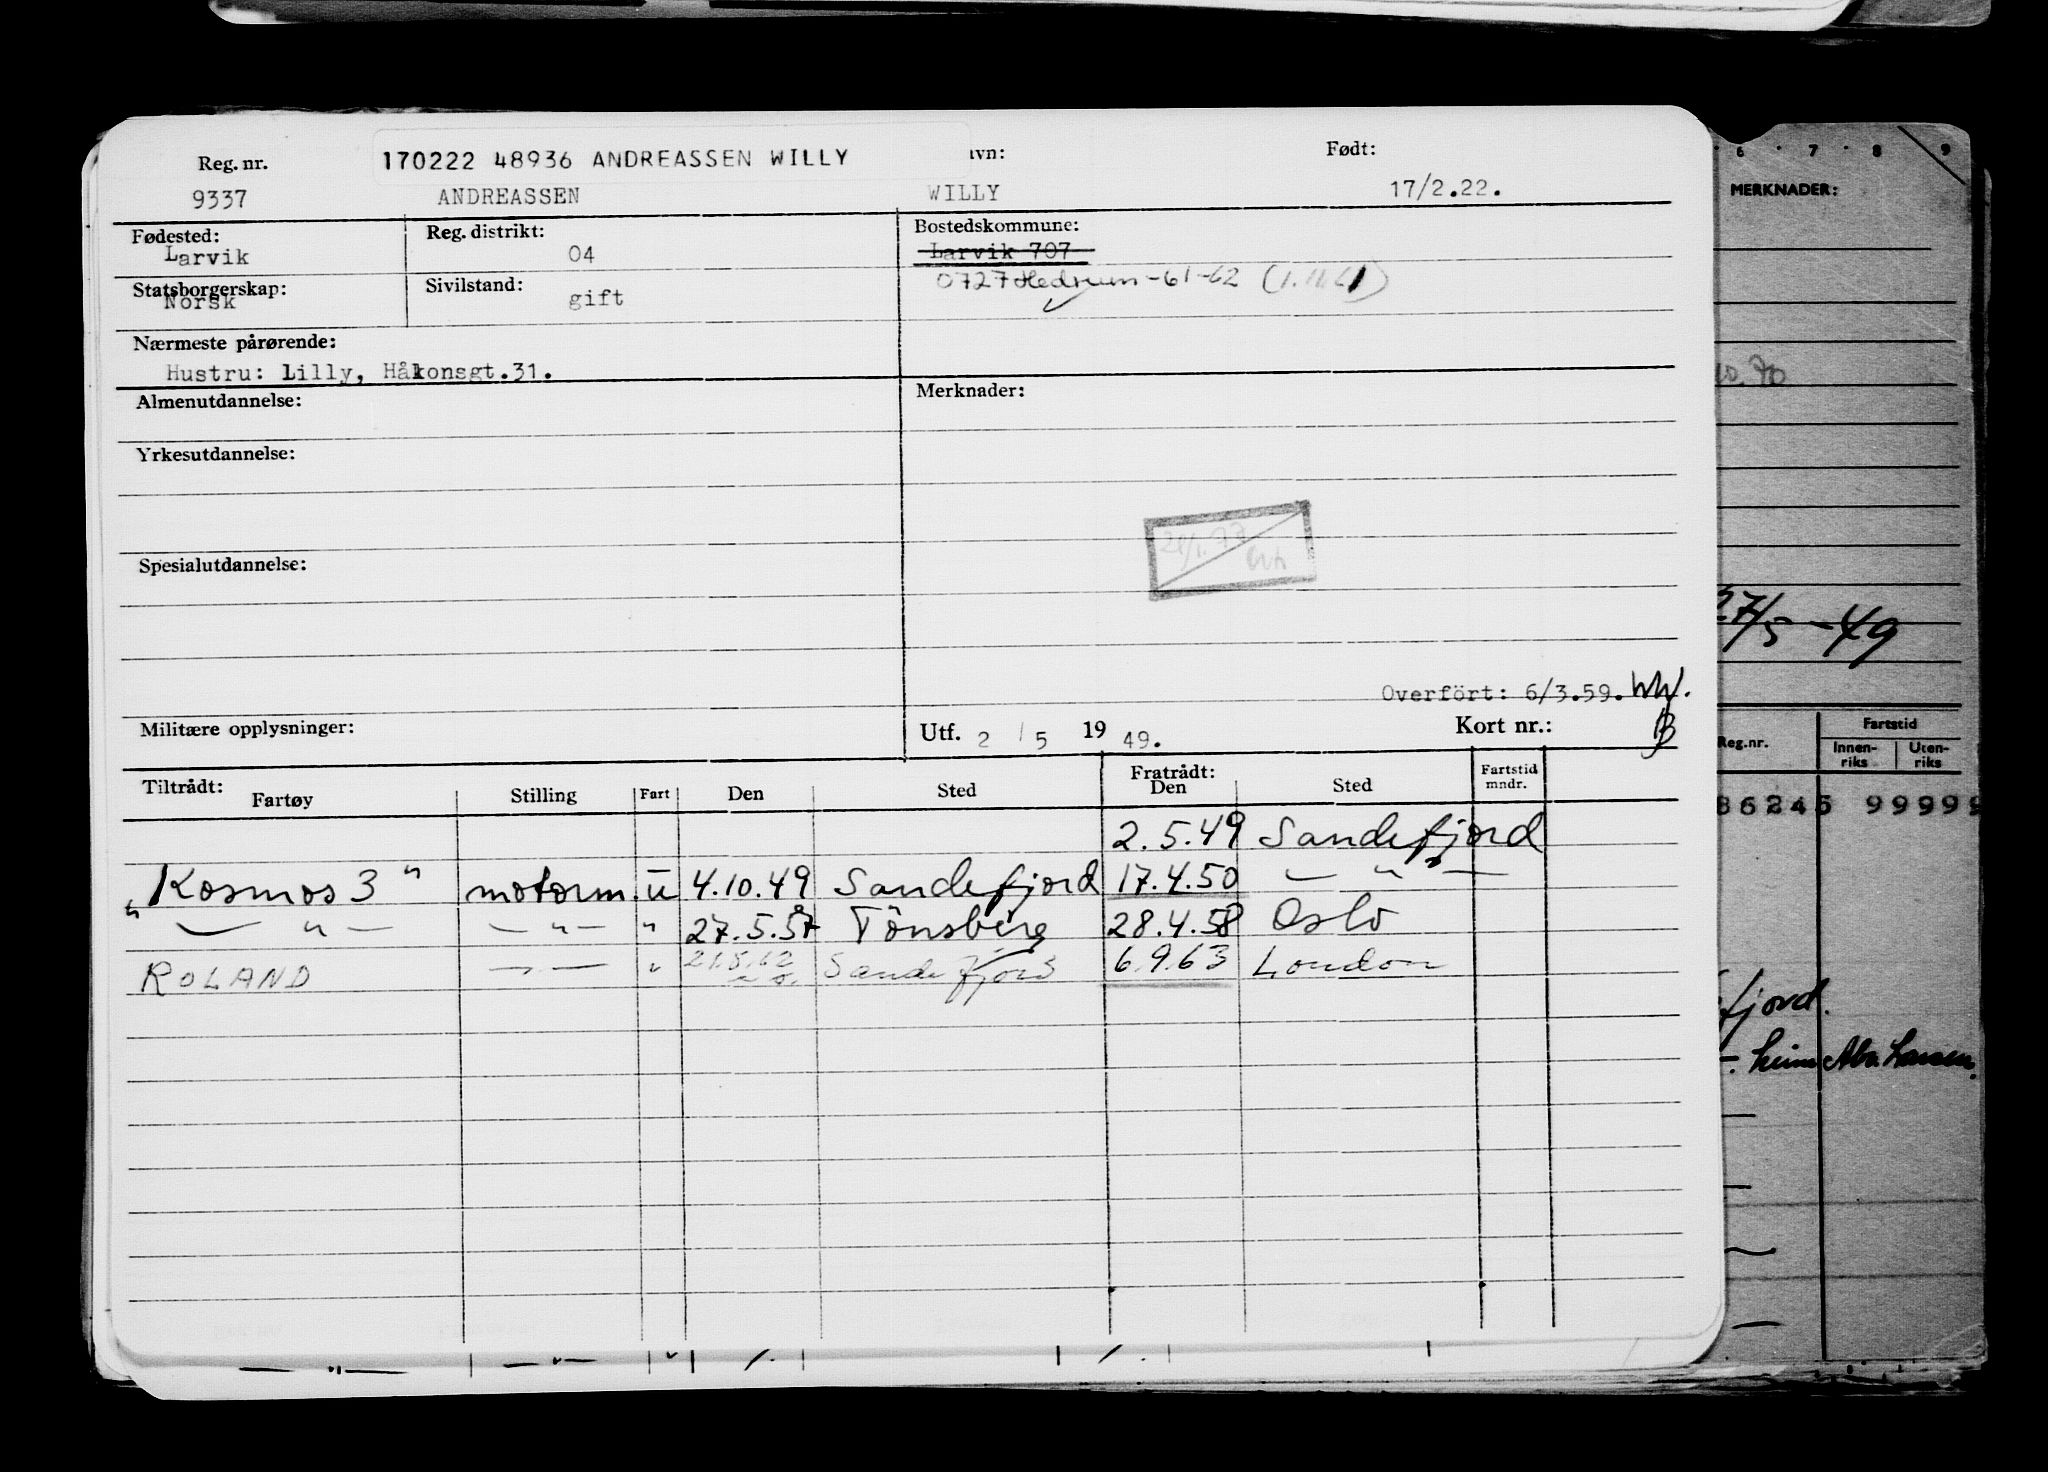 Reg. nr. 170222 48936 ANDREASSEN WILLY vn: Født:
9337 ANDREASSEN WILLY 17/2.22.
Fødested: Reg. distrikt: Bostedskommune:
Larvik 04 Larvik 707
Statsborgerskap: Sivilstand: 0727 Hedrum -61-62
Norsk gift
Nærmeste pårørende:
Hustru: Lilly, Håkonsgt.31.
Almenutdannelse: Merknader:
Yrkesutdannelse:
Spesialutdannelse:
Overført: 6/3.59.
Militære opplysninger: Utf. 2 / 5 19 49. Kort nr.:
Tiltrådt: Fratrådt: Fartstid
Fartøy Stilling Fart Den Sted Den Sted mndr.
2.5.49 Sandefjord
"Kosmos 3" motorm. u 4.10.49 Sandefjord 17.4.50 — " —
— " — — " — " 27.5.57 Tönsberg 28.4.58 Oslo
ROLAND — " — " 21.8.62 Sandefjord 6.9.63 London
6 7 8 9
MERKNADER:
10.70
27/5 -49
Reg.nr. Fartstid
Innen-
riks Uten-
riks
86245 99999
fjord.